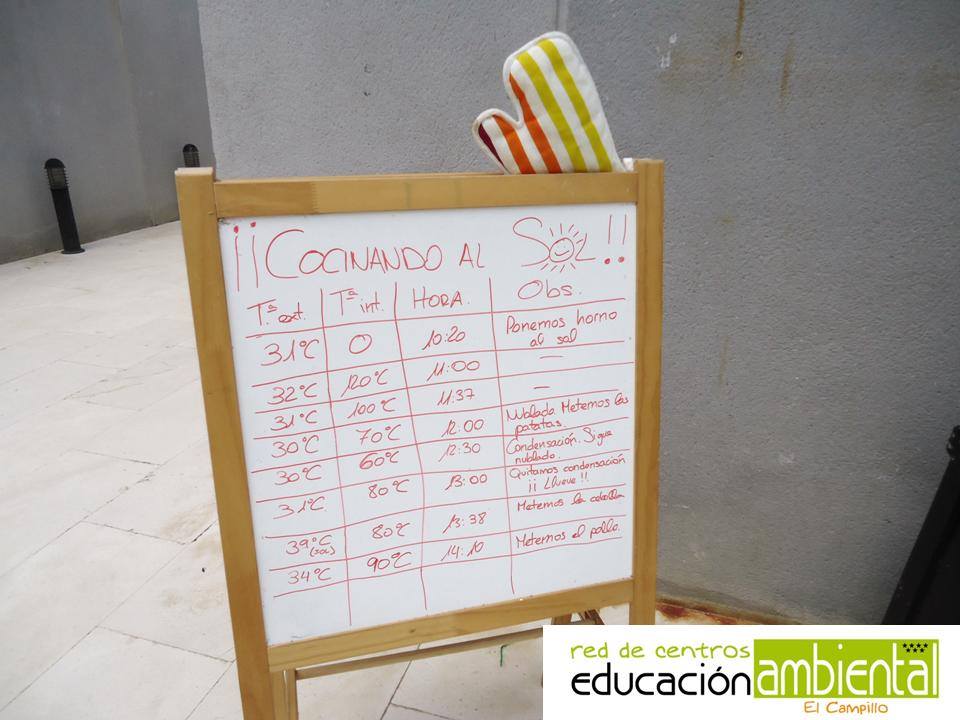 ¡¡COCINANDO AL SOL!!
Tª ext. Tª int. HORA. Obs.
31ºC 0 10:20 Ponemos horno al sol
32ºC 120ºC 11:00 —
31ºC 100ºC 11:37 —
30ºC 70ºC 12:00 Nublado. Metemos las patatas.
30ºC 60ºC 12:30 Condensación. Sigue nublado.
31ºC 80ºC 13:00 Quitamos condensación ¡¡Llueve!!
39ºC (sol) 80ºC 13:38 Metemos la cebolla
34ºC 90ºC 14:10 Metemos el pollo.
red de centros
educación ambiental
El Campillo